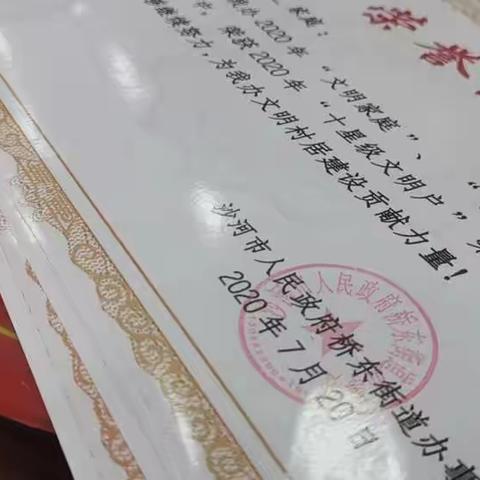 荣誉
家庭：
我办2020年“文明家庭”、“
荣获2020年“十星级文明户”
继续努力，为我办文明村居建设贡献力量！
沙河市人民政府桥东街道办事
2020年7月20日
人民政府桥东街道